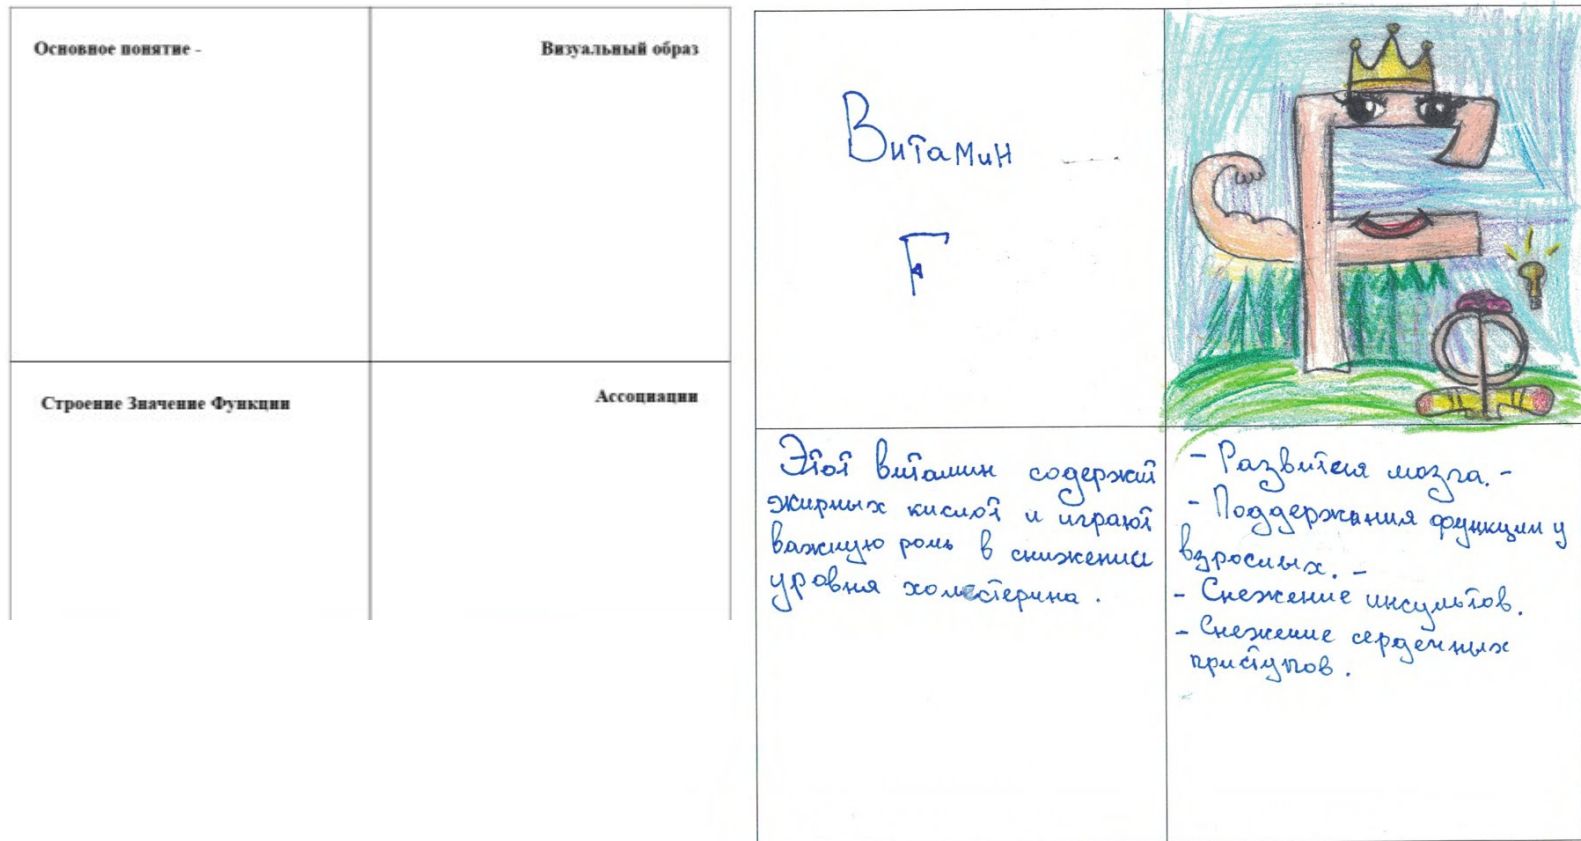 Основное понятие -
Визуальный образ
Строение Значение Функции
Ассоциации
Витамин
F
Этот витамин содержит
жирных кислот и играют
важную роль в снижении
уровня холестерина.
- Развития мозга. -
- Поддержания функции у
взрослых. -
- Снежение инсультов.
- Снежение серденных
приступов.